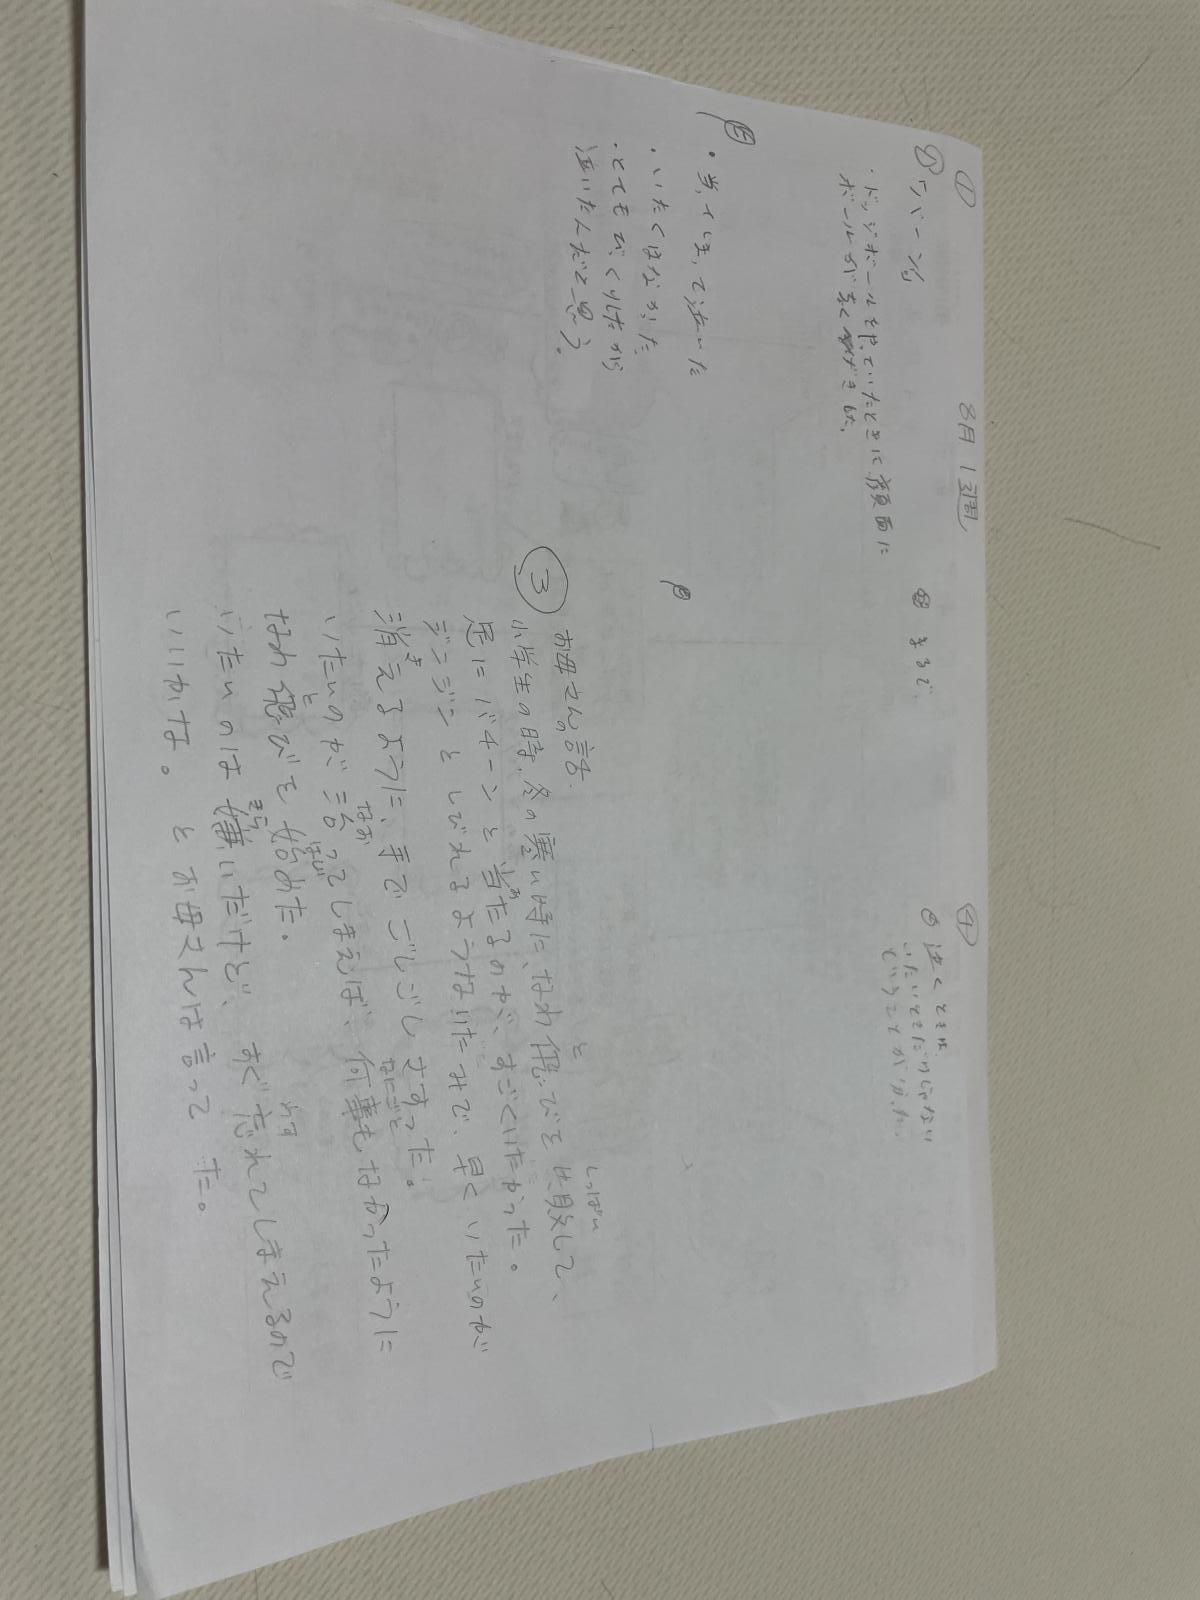 8月 1週間
①
㋐ バーン
・ドッジボールをやっていたときに顔面に
ボールが
・当
・いたくはなかった
・とてもびっくりしたから
泣いたんだと思う。
まるで
③ お母さんの話
小学生の時、冬の寒い時に、なわ飛びを失敗して、
と
しっぱい
足にバチーンと当たるのが、すごくいたかった。
あ
ジンジンとしびれるようないたみで、早くいたいのが
消えるように、手でごしごしさすった。
き
いたいのが治ってしまえば、何事もなかったように
なお
なにごと
なわ飛びを始めた。
と
はじ
いたいのは嫌いだけど、すぐ忘れてしまえるので
きら
わす
いいかな。とお母さんは言ってた。
④
泣くときは
いたいときだけじゃない
ということが